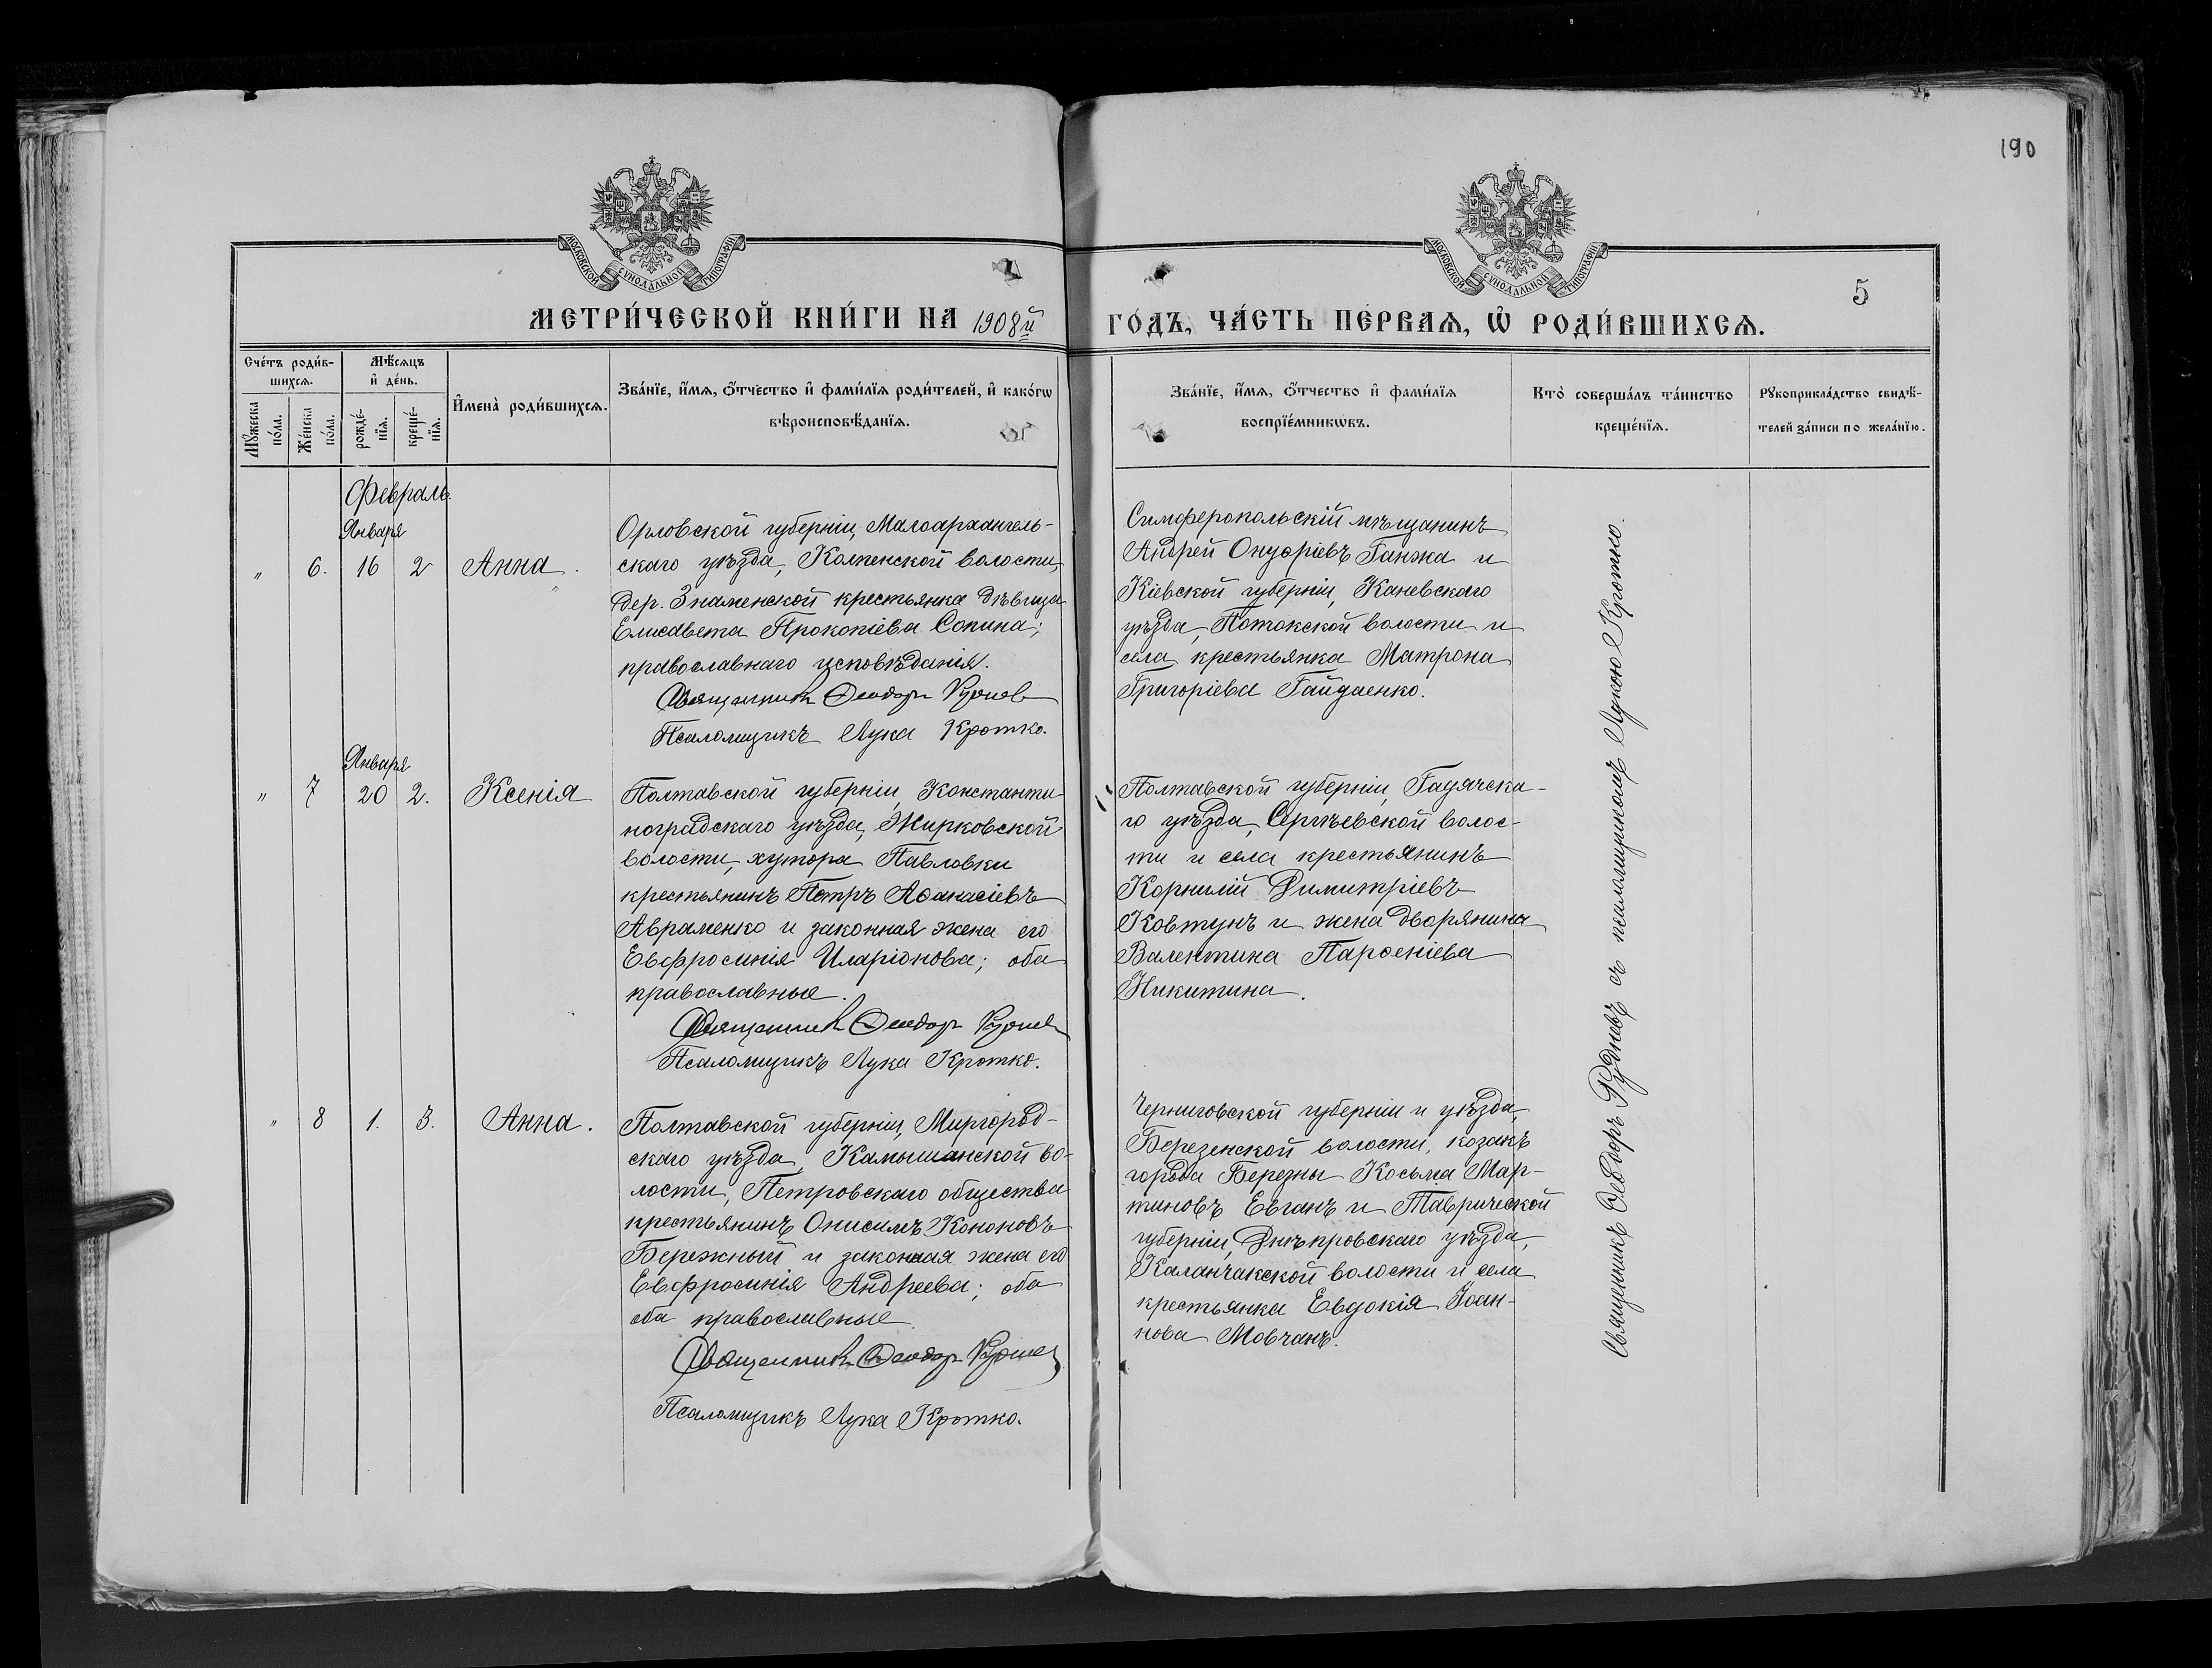 190
МОСКОВСКОЙ СУНОДАЛЬНОЙ ТИПОГРАФІИ
МОСКОВСКОЙ СУНОДАЛЬНОЙ ТИПОГРАФІИ
5
МЕТРИ́ЧЕСКОЙ КНИ́ГИ НА 1908й ГО́ДЪ, ЧА́СТЬ ПЕ́РВАѦ, Ѡ҆ РОДИ́ВШИХСѦ.
Сче́тъ роди́в-
шихсѧ.
Мѣ́сѧцъ
и҆ де́нь.
Мꙋ́жеска
по́ла.
Же́нска
по́ла.
рожде́-
нїѧ.
креще́-
нїѧ.
И҆мена̀ роди́вшихсѧ.
Зва́нїе, и҆́мѧ, ѻ҆́тчество и҆ фами́лїѧ роди́телей, и҆ како́гѡ
вѣроисповѣ́данїѧ.
Зва́нїе, и҆́мѧ, ѻ҆́тчество и҆ фами́лїѧ
воспрїе́мникѡвъ.
Кто̀ соверша́лъ та́инство
креще́нїѧ.
Рꙋкоприкла́дство свидѣ́-
телей за́писи по жела́нїю.
Февраль.
Января
" 6. 16 2 Анна.
Орловской губерніи, Малоархангель-
скаго уѣзда, Колпенской волости,
дер. Знаменской крестьянка дѣвица
Елисавета Прокопіева Сопина;
православнаго исповѣданія.
Священникъ Ѳеодоръ Рудневъ
Псаломщикъ Лука Кротко.
Симферопольскій мѣщанинъ
Андрей Онуфріевъ Ганжа и
Кіевской губерніи, Каневскаго
уѣзда, Потокской волости и
села крестьянка Матрона
Григоріева Гайдаенко.
Января
" 7 20 2. Ксенія
Полтавской губерніи, Константи-
ноградскаго уѣзда, Жирковской
волости, хутора Павловки
крестьянинъ Петръ Аѳанасіевъ
Авраменко и законная жена его
Евфросинія Иларіонова; оба
православные.
Священникъ Ѳеодоръ Рудневъ
Псаломщикъ Лука Кротко.
Полтавской губерніи, Гадячска-
го уѣзда, Сергѣевской волос-
ти и села крестьянинъ
Корнилій Димитріевъ
Ковтунъ и жена дворянина
Валентина Парѳеніева
Никитина.
" 8 1. 3. Анна.
Полтавской губерніи, Миргород-
скаго уѣзда, Камышанской во-
лости, Петровскаго общества
крестьянинъ Онисимъ Кононовъ
Бережный и законная жена его
Евфросинія Андреева; оба
оба православные.
Священникъ Ѳеодоръ Рудневъ
Псаломщикъ Лука Кротко.
Черниговской губерніи и уѣзда,
Березенской волости, козакъ
города Березны Косьма Мар-
тиновъ Евганъ и Таврической
губерніи, Днѣпровскаго уѣзда,
Каланчакской волости и села
крестьянка Евдокія Іоан-
нова Мовчанъ.
Священникъ Ѳеодоръ Рудневъ съ псаломщикомъ Лукою Кротко.